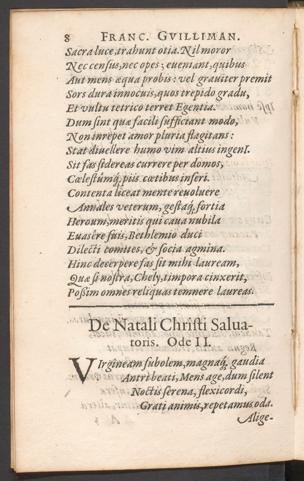 8 FRANC. GVILLIMAN.
Sacra luce trahunt otia. Nil moror
Nec census, nec opes; eveniant, quibus
Aut mens æqua probis: vel graviter premit
Sors dura innocuis, quos trepido gradu,
Et vultu tetrico terret Egentia.
Dum sint quæ facilè sufficiant modo,
Non inrepet amor pluria flagitans:
Stat divellere humo vim altius ingenI.
Sit fas sidereas currere per domos,
Cælestûmq́; piis cœtibus inseri.
Contenta liceat mente revoluere
Annales veterum, gestaq́; fortia
Heroum, meritis qui caua nubila
Euasêre suis, Bethlemio duci
Dilecti comites, & socia agmina.
Hinc decerpere fas sit mihi lauream,
Quæ si nostra, Chely, timpora cinxerit,
Possim omnes reliquas temnere laureas.
De Natali Christi Salua-
toris. Ode II.
VIrgineam subolem, magnaq́; gaudia
Antri beati, Mens age, dum silent
Noctis serena, flexicordi,
Grati animis, repetamus oda.
Alige-